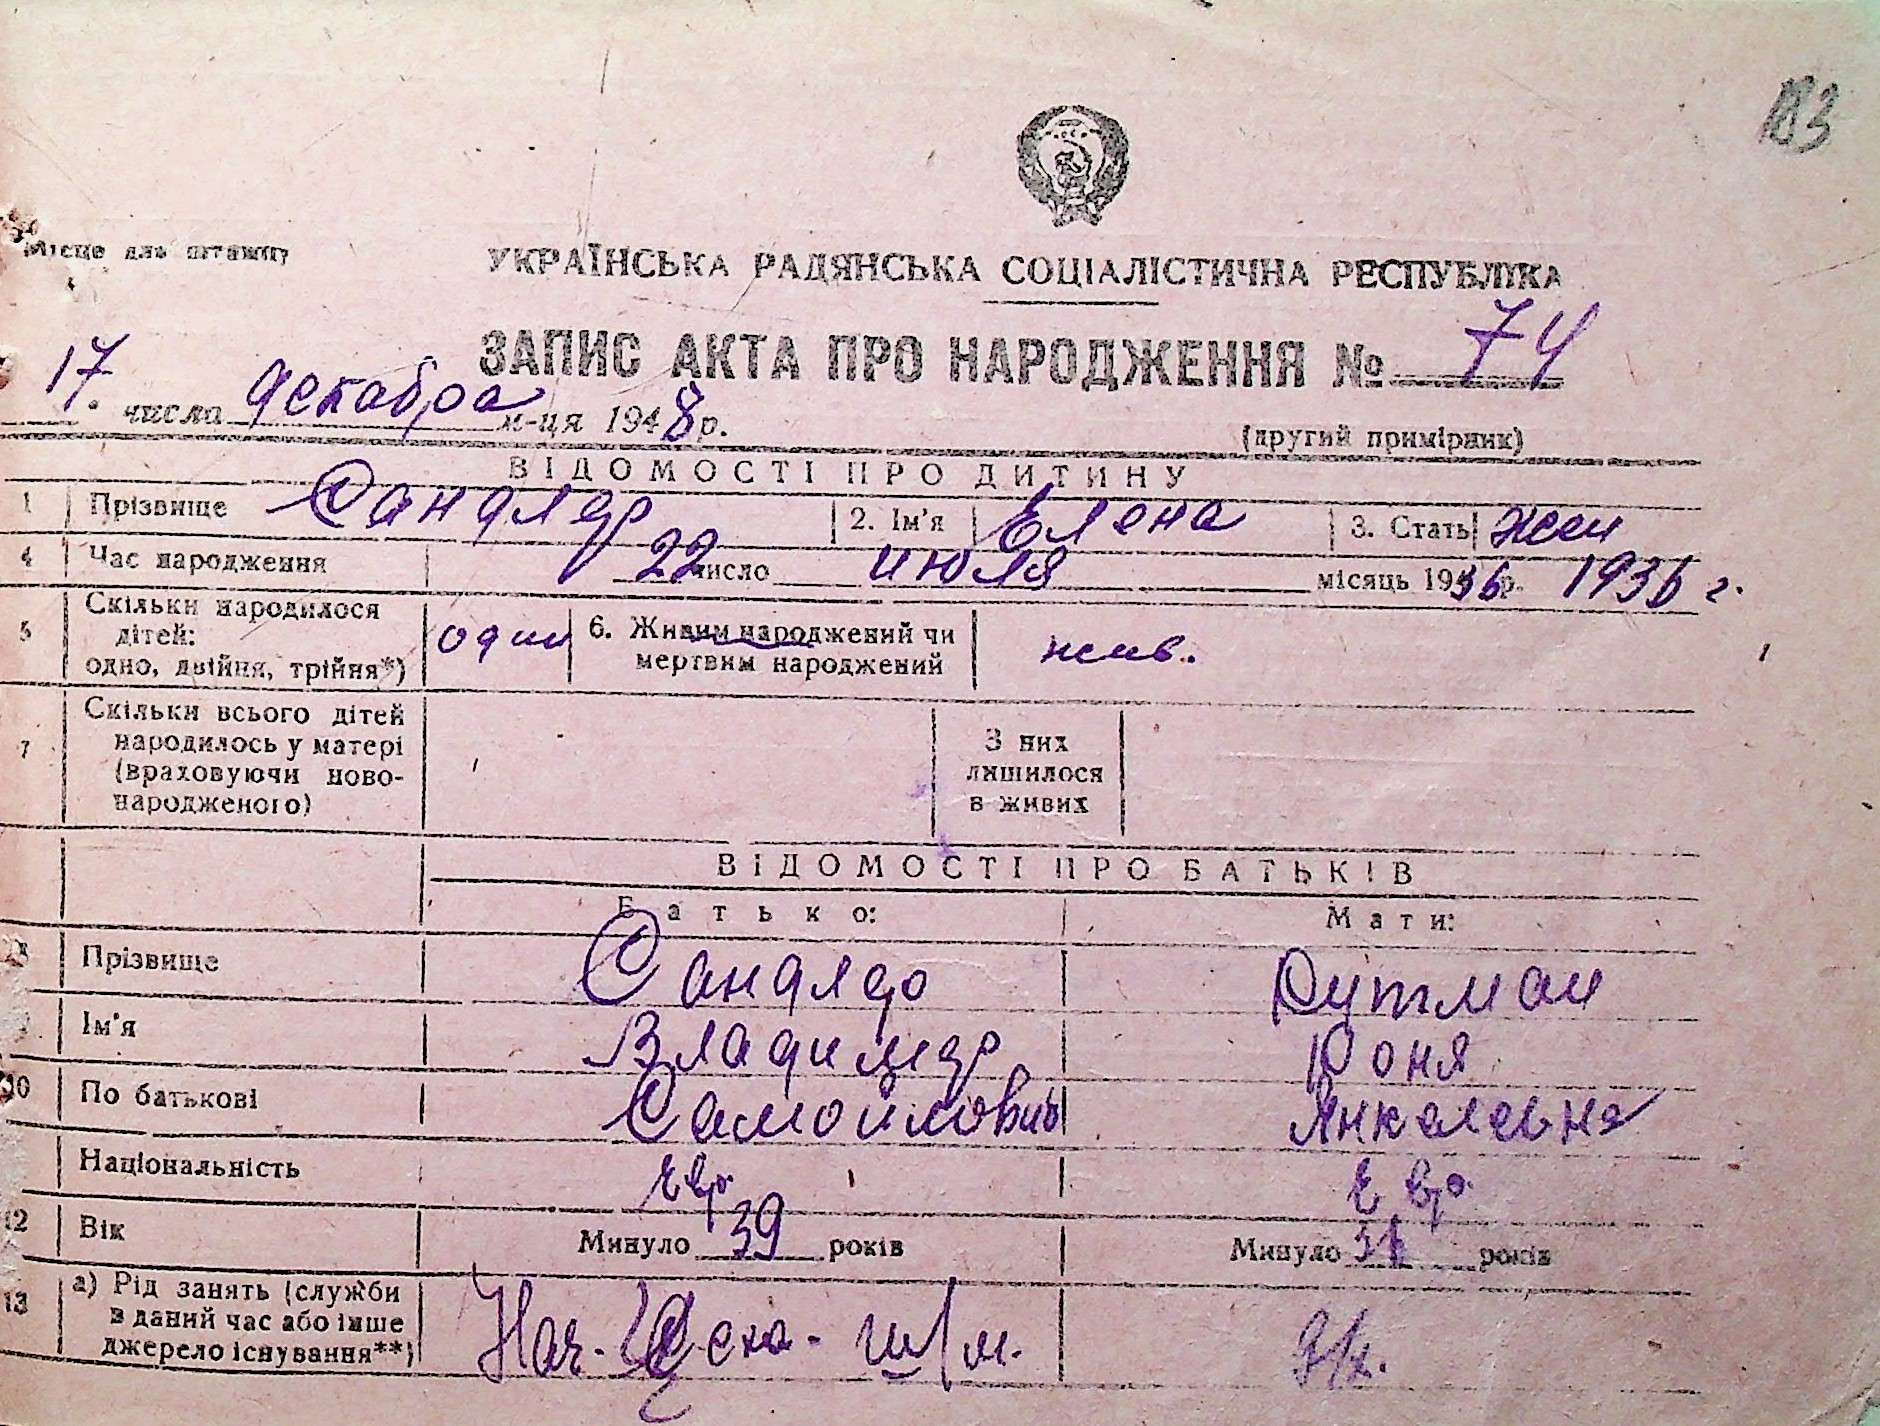 183
Місце для штампу
УКРАЇНСЬКА РАДЯНСЬКА СОЦІАЛІСТИЧНА РЕСПУБЛІКА
ЗАПИС АКТА ПРО НАРОДЖЕННЯ № 74
17 числа декабра м-ця 1948 р.
(другий примірник)
ВІДОМОСТІ ПРО ДИТИНУ
1 Прізвище Сандлер 2. Ім'я Елена 3. Стать жен
4 Час народження 22 число июля місяць 1936 р. 1936 г.
5 Скільки народилося дітей: одно, двійня, трійня*) один 6. Живим народжений чи мертвим народжений жив.
7 Скільки всього дітей народилось у матері (враховуючи ново-народженого) З них лишилося в живих
ВІДОМОСТІ ПРО БАТЬКІВ
Батько: Мати:
8 Прізвище Сандлер Рутман
9 Ім'я Владимир Юня
10 По батькові Самойлович Янкелевна
Національність Евр. Евр.
12 Вік Минуло 39 років Минуло років
13 а) Рід занять (служби в даний час або інше джерело існування**) Нач. Цеха - ш/м. д/х.